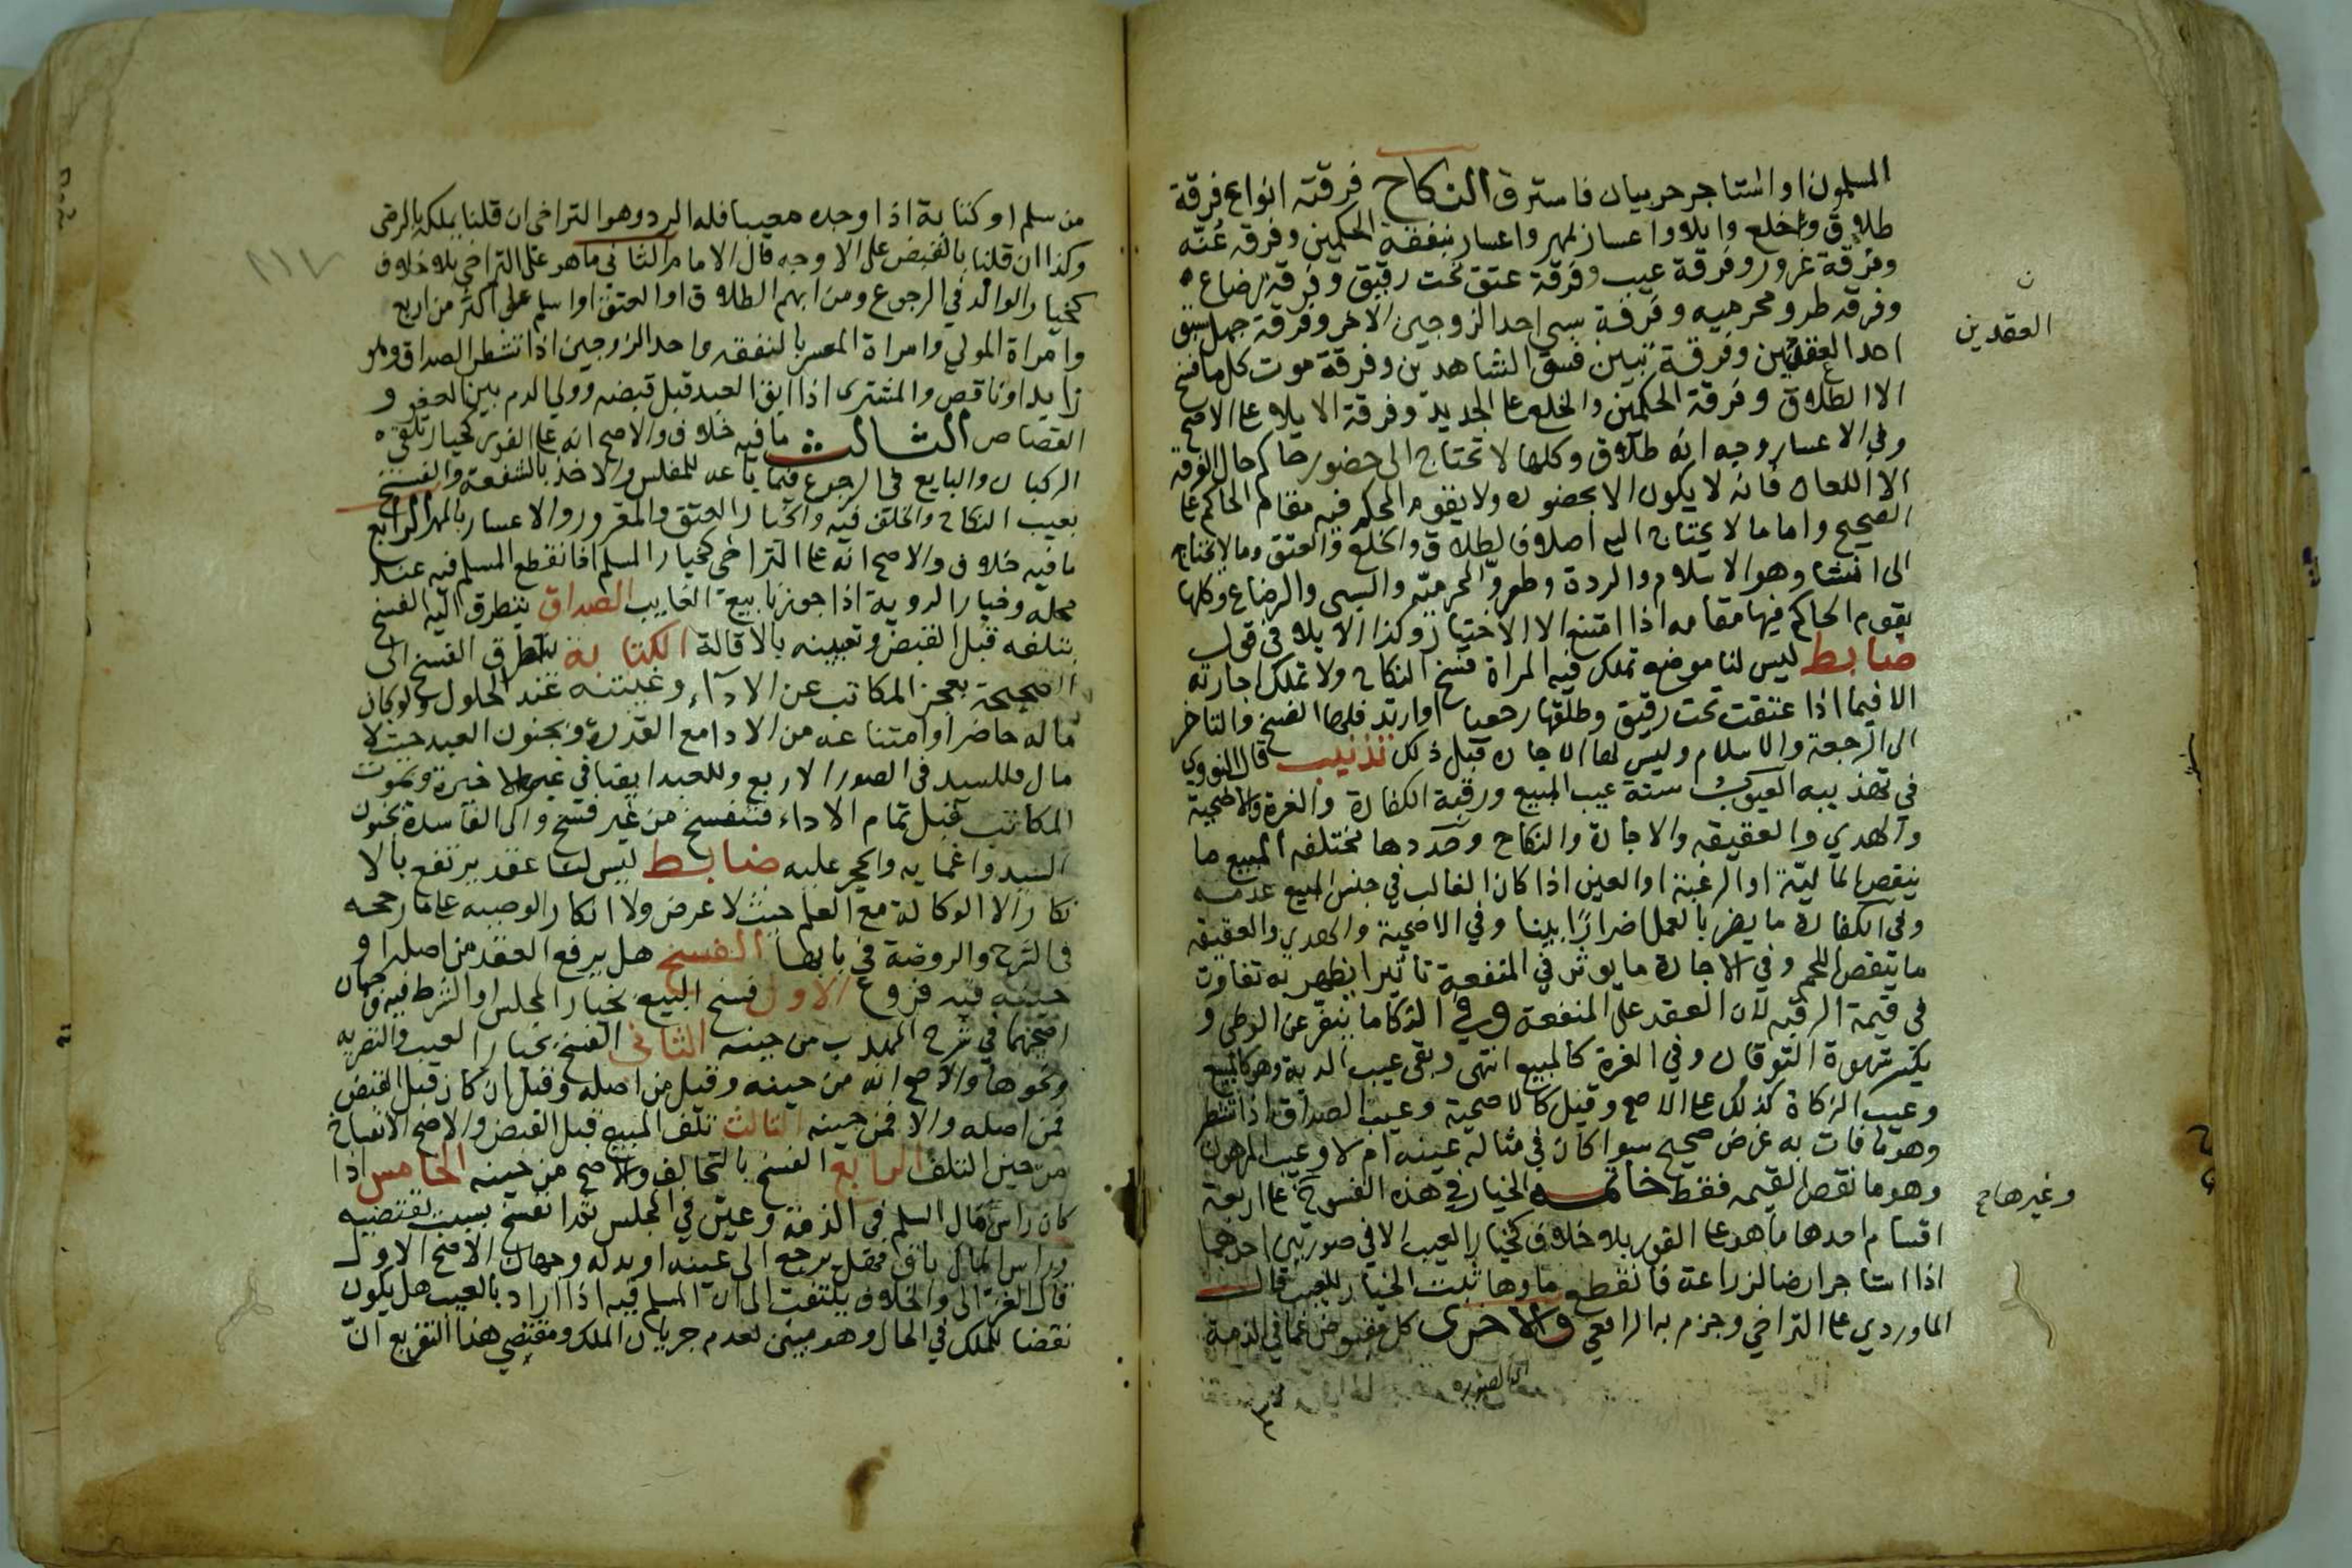 المسلمون او استاجر حربيان فاسترق النكاح فرقته انواع فرقة
طلاق وخلع وايلا واعسار بمهر واعسار بنفقة الحكمين وفرقه عُنّه
وفرقة غرور وفرقة عيب وفرقة عتق تحت رقيق وفرقة رضاع
وفرقه طرو محرميه وفرقة سبي احد الزوجين الاخر وفرقة جهل سبق
العقدين
احد العقدين وفرقة تبين فسق الشاهدين وفرقة موت كلها فسخ
الا الطلاق وفرقة الحكمين والخلع عا الجديد وفرقة الايلا عا الاصح
وفي الاعسار وجه انه طلاق وكلها لا تحتاج الى حضور حاكم حال الفرقه
الا اللعان فانه لا يكون الا بحضوره ولا يقوم المحكم فيه مقام الحاكم عا
الصحيح واما ما لا يحتاج اليه اصلا فالطلاق والخلع والعتق وما لا يحتاج
الى انشا وهو الاسلام والردة وطرو المحرميّه والسبي والرضاع وكلها
يقوم الحاكم فيها مقامه اذا امتنع الا الاختيار وكذا الايلا في قول
ضابط ليس لنا موضع تملك فيه المراة فسخ النكاح ولا تملك اجازته
الا فيما اذا عتقت تحت رقيق وطلقها رجعيا او ارتد فلها الفسخ والتاخر
الى الرجعة والاسلام وليس لها الاجازه قبل ذلك تذنيب قال النووي
في تهذيبه العيوب ستة عيب المبيع ورقبة الكفارة والغرة والاضحية
والهدي والعقيقه والاجارة والنكاح وحدودها مختلفه المبيع ما
ينقص الماليّة او الرغبة او العين اذا كان الغالب في جنس المبيع عدمه
وفي الكفارة ما يضر بالعمل اضرارًا بينا وفي الاضحية والهدي والعقيقه
ما ينقص اللحم وفي الاجارة ما يوثر في المنفعة تاثيرا يظهر به تفاوت
في قيمة الرقبه لان العقد على المنفعة وفي النكاح ما ينفر عن الوطي و
يكسر شهوة التوقان وفي الغرة كالمبيع انتهى وبقى عيب الدية وهو كالمبيع
وعيب الزكاة كذلك عا الاصح وقيل كالاضحية وعيب الصداق اذا تشطر
وهو ما فات به غرض صحيح سوا كان في مثاله عينه ام لا وعيب المرهون
وغيرها
وهو ما نقص القيمه فقط خاتمه الخيار في هذه الفسوخ عا اربعة
اقسام احدها ما هو عا الفور بلا خلاف كخيار العيب الا في صورتين احداهما
اذا استاجر ارضا لزراعة فانقطع ماوها ثبت الخيار للعيب قال
الماوردي عا التراخي وجزم به الرافعي والاخرى كل مقبوض عما في الذمة
من سلم او كتابة اذا وجده معيبا فله الرد وهو التراخي ان قلنا يملكه بالرضى
وكذا ان قلنا بالقبض على الاوجه قال الامام الثاني ما هو على التراخي بلا خلاف
١١٧
كخيار الوالد في الرجوع ومن ابهم الطلاق او العتق او اسلم على اكثر من اربع
وامراة المولي وامراة المعسر بالنفقه واحد الزوجين اذا تشطر الصداق وهو
زايد او ناقص والمشتري اذا ابق العبد قبل قبضه وولي الدم بين العفو و
القصاص الثالث ما فيه خلاف والاصح انه عا الفور كخيار تلقي
الركبان والبايع في الرجوع فيما باعه للمفلس والاخذ بالشفعة والفسخ
بعيب النكاح والخلف فيه وخيار العتق والمغرور والاعسار بالمهر الرابع
ما فيه خلاف والاصح انه عا التراخي كخيار المسلم اذا انقطع المسلم فيه عند
محله وخيار الروية اذا جوزنا بيع الغايب الصداق يتطرق اليه الفسخ
بتلفه قبل القبض وتعيبه بالاقالة الكتابة يتطرق الفسخ الى
الصحيحة بعجز المكاتب عن الادآء وغيبته عند الحلول ولو كان
ماله حاضرا وامتناعه من الادا مع القدرة وبجنون العبد حيث لا
مال فللسيد في الصور الاربع وللعبد ايضا في غير الاخيرة وبموت
المكاتب قبل تمام الاداء فتنفسخ من غير فسخ والى الفاسدة بجنون
السيد واغمايه والحجر عليه ضابط ليس لنا عقد يرتفع بالا
نكار الا الوكالة مع العلم حيث لا غرض ولا انكار الوصيه عا ما رجحه
في الشرح والروضة في بابها الفسخ هل يرفع العقد من اصله او
حينه فيه فروع الاول فسخ البيع بخيار المجلس او الشرط فيه وجهان
اصحهما في شرح المهذب من حينه الثاني الفسخ بخيار العيب والتصريه
ونحوها والاصح انه من حينه وقيل من اصله وقيل ان كان قبل القبض
فمن اصله والا فمن حينه الثالث تلف المبيع قبل القبض والاصح الانفساخ
من حين التلف الرابع الفسخ بالتحالف والاصح من حينه الخامس اذا
كان راس مال السلم في الذمة وعين في المجلس ثم انفسخ بسبب يقتضيه
وراس المال باق فهل يرجع الى عينه او بدله وجهان الاصح الاول
قال الغزالي والخلاف يلتفت الى ان المسلم فيه اذا اراد بالعيب هل يكون
نقضا للملك في الحال وهو مبنى لعدم جريان الملك ومقتضي هذا التفريع انّ